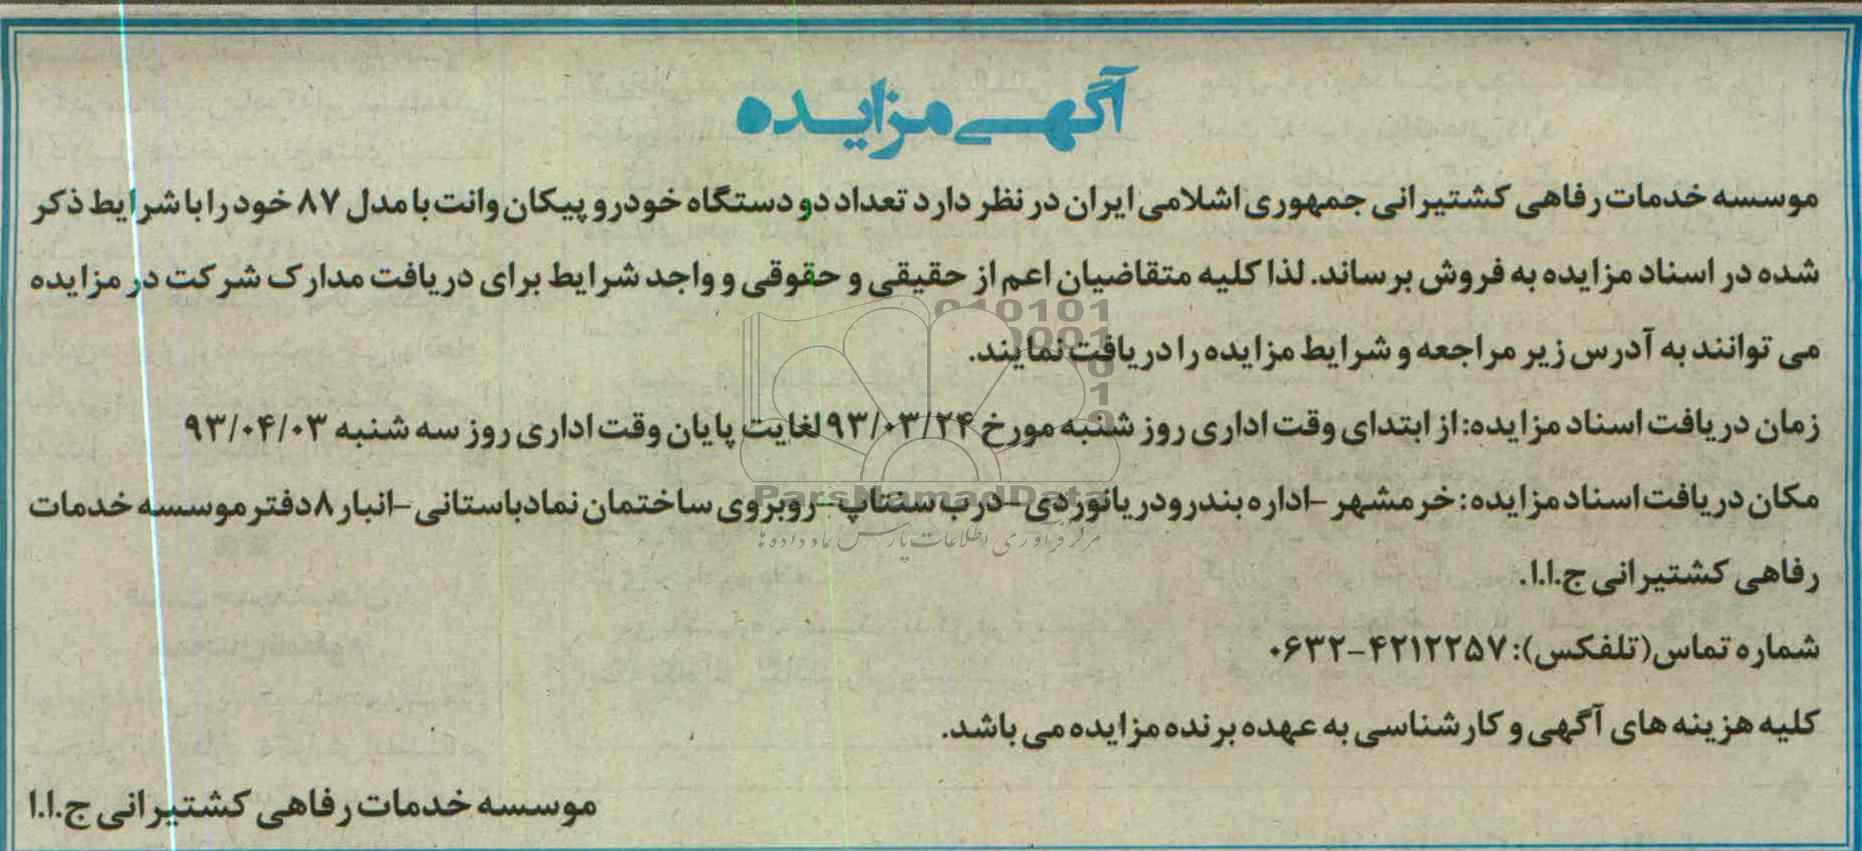 آگهی مزایده
موسسه خدمات رفاهی کشتیرانی جمهوری اشلامی ایران در نظر دارد تعداد دو دستگاه خودرو پیکان وانت با مدل ۸۷ خود را با شرایط ذکر
شده در اسناد مزایده به فروش برساند. لذا کلیه متقاضیان اعم از حقیقی و حقوقی و واجد شرایط برای دریافت مدارک شرکت در مزایده
می توانند به آدرس زیر مراجعه و شرایط مزایده را دریافت نمایند.
زمان دریافت اسناد مزایده: از ابتدای وقت اداری روز شنبه مورخ ۹۳/۰۳/۲۴ لغایت پایان وقت اداری روز سه شنبه ۹۳/۰۴/۰۳
مکان دریافت اسناد مزایده: خرمشهر –اداره بندر و دریانوردی– درب سنتاپ– روبروی ساختمان نماد باستانی –انبار ۸ دفتر موسسه خدمات
رفاهی کشتیرانی ج.ا.ا.
شماره تماس (تلفکس): ۴۲۱۲۲۵۷–۰۶۳۲
کلیه هزینه های آگهی و کارشناسی به عهده برنده مزایده می باشد.
موسسه خدمات رفاهی کشتیرانی ج.ا.ا
ParsNamadData
مرکز فرآوری اطلاعات پارس نماد داده ها